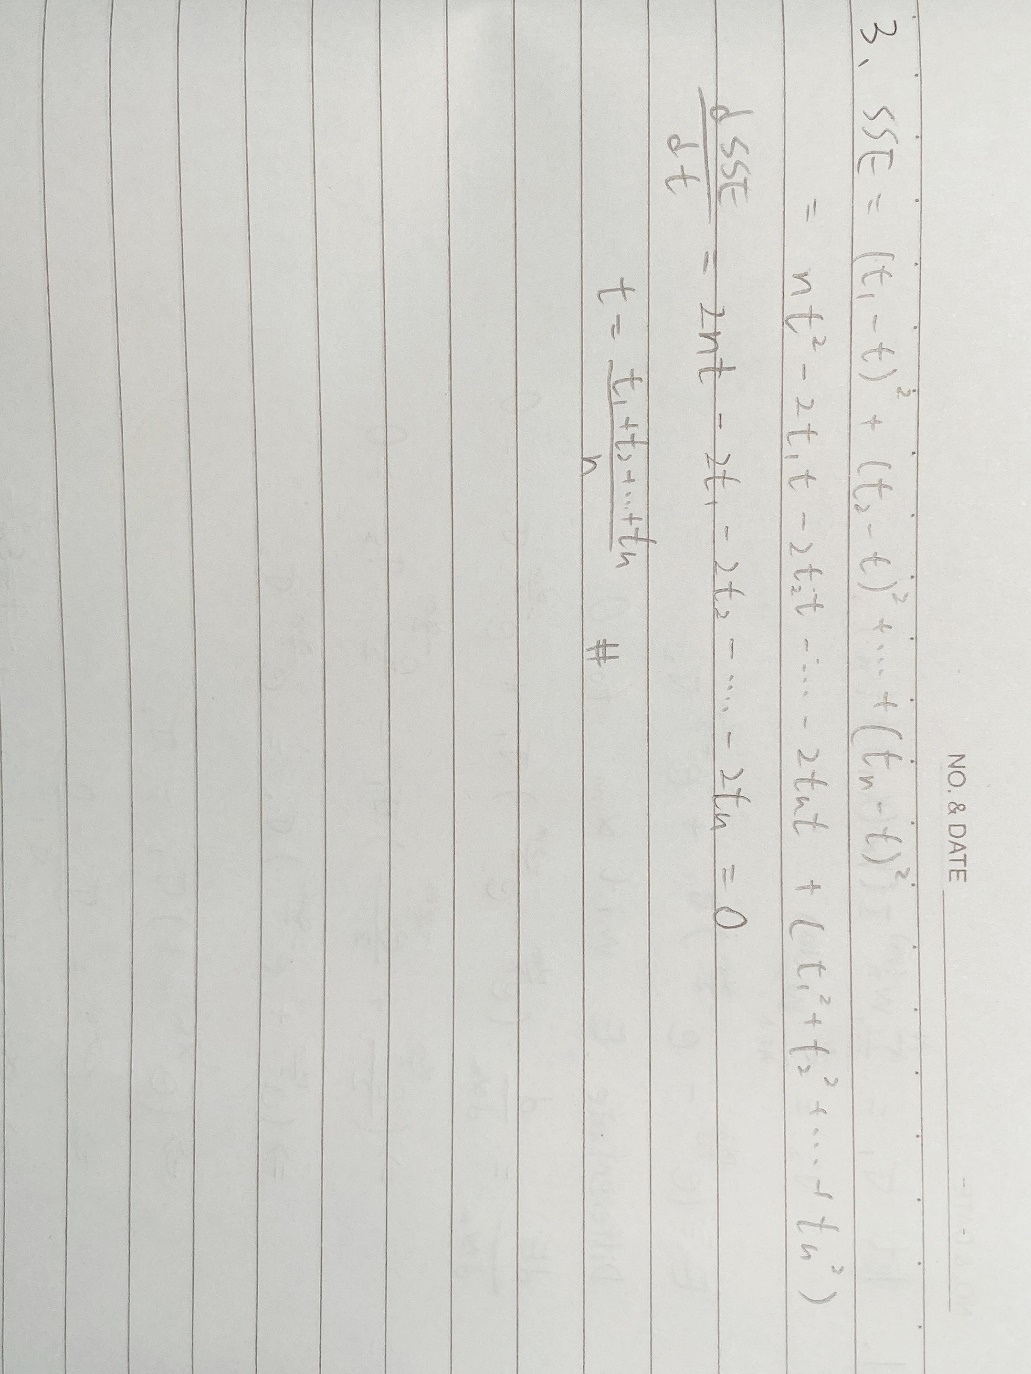 NO. & DATE
3、 SSE = (t₁ - t)² + (t₂ - t)² + ... + (tₙ - t)²
= nt² - 2t₁t - 2t₂t - ... - 2tₙt + (t₁² + t₂² + .... + tₙ²)
dSSE/dt = 2nt - 2t₁ - 2t₂ - .... - 2tₙ = 0
t = (t₁+t₂+...+tₙ)/n #